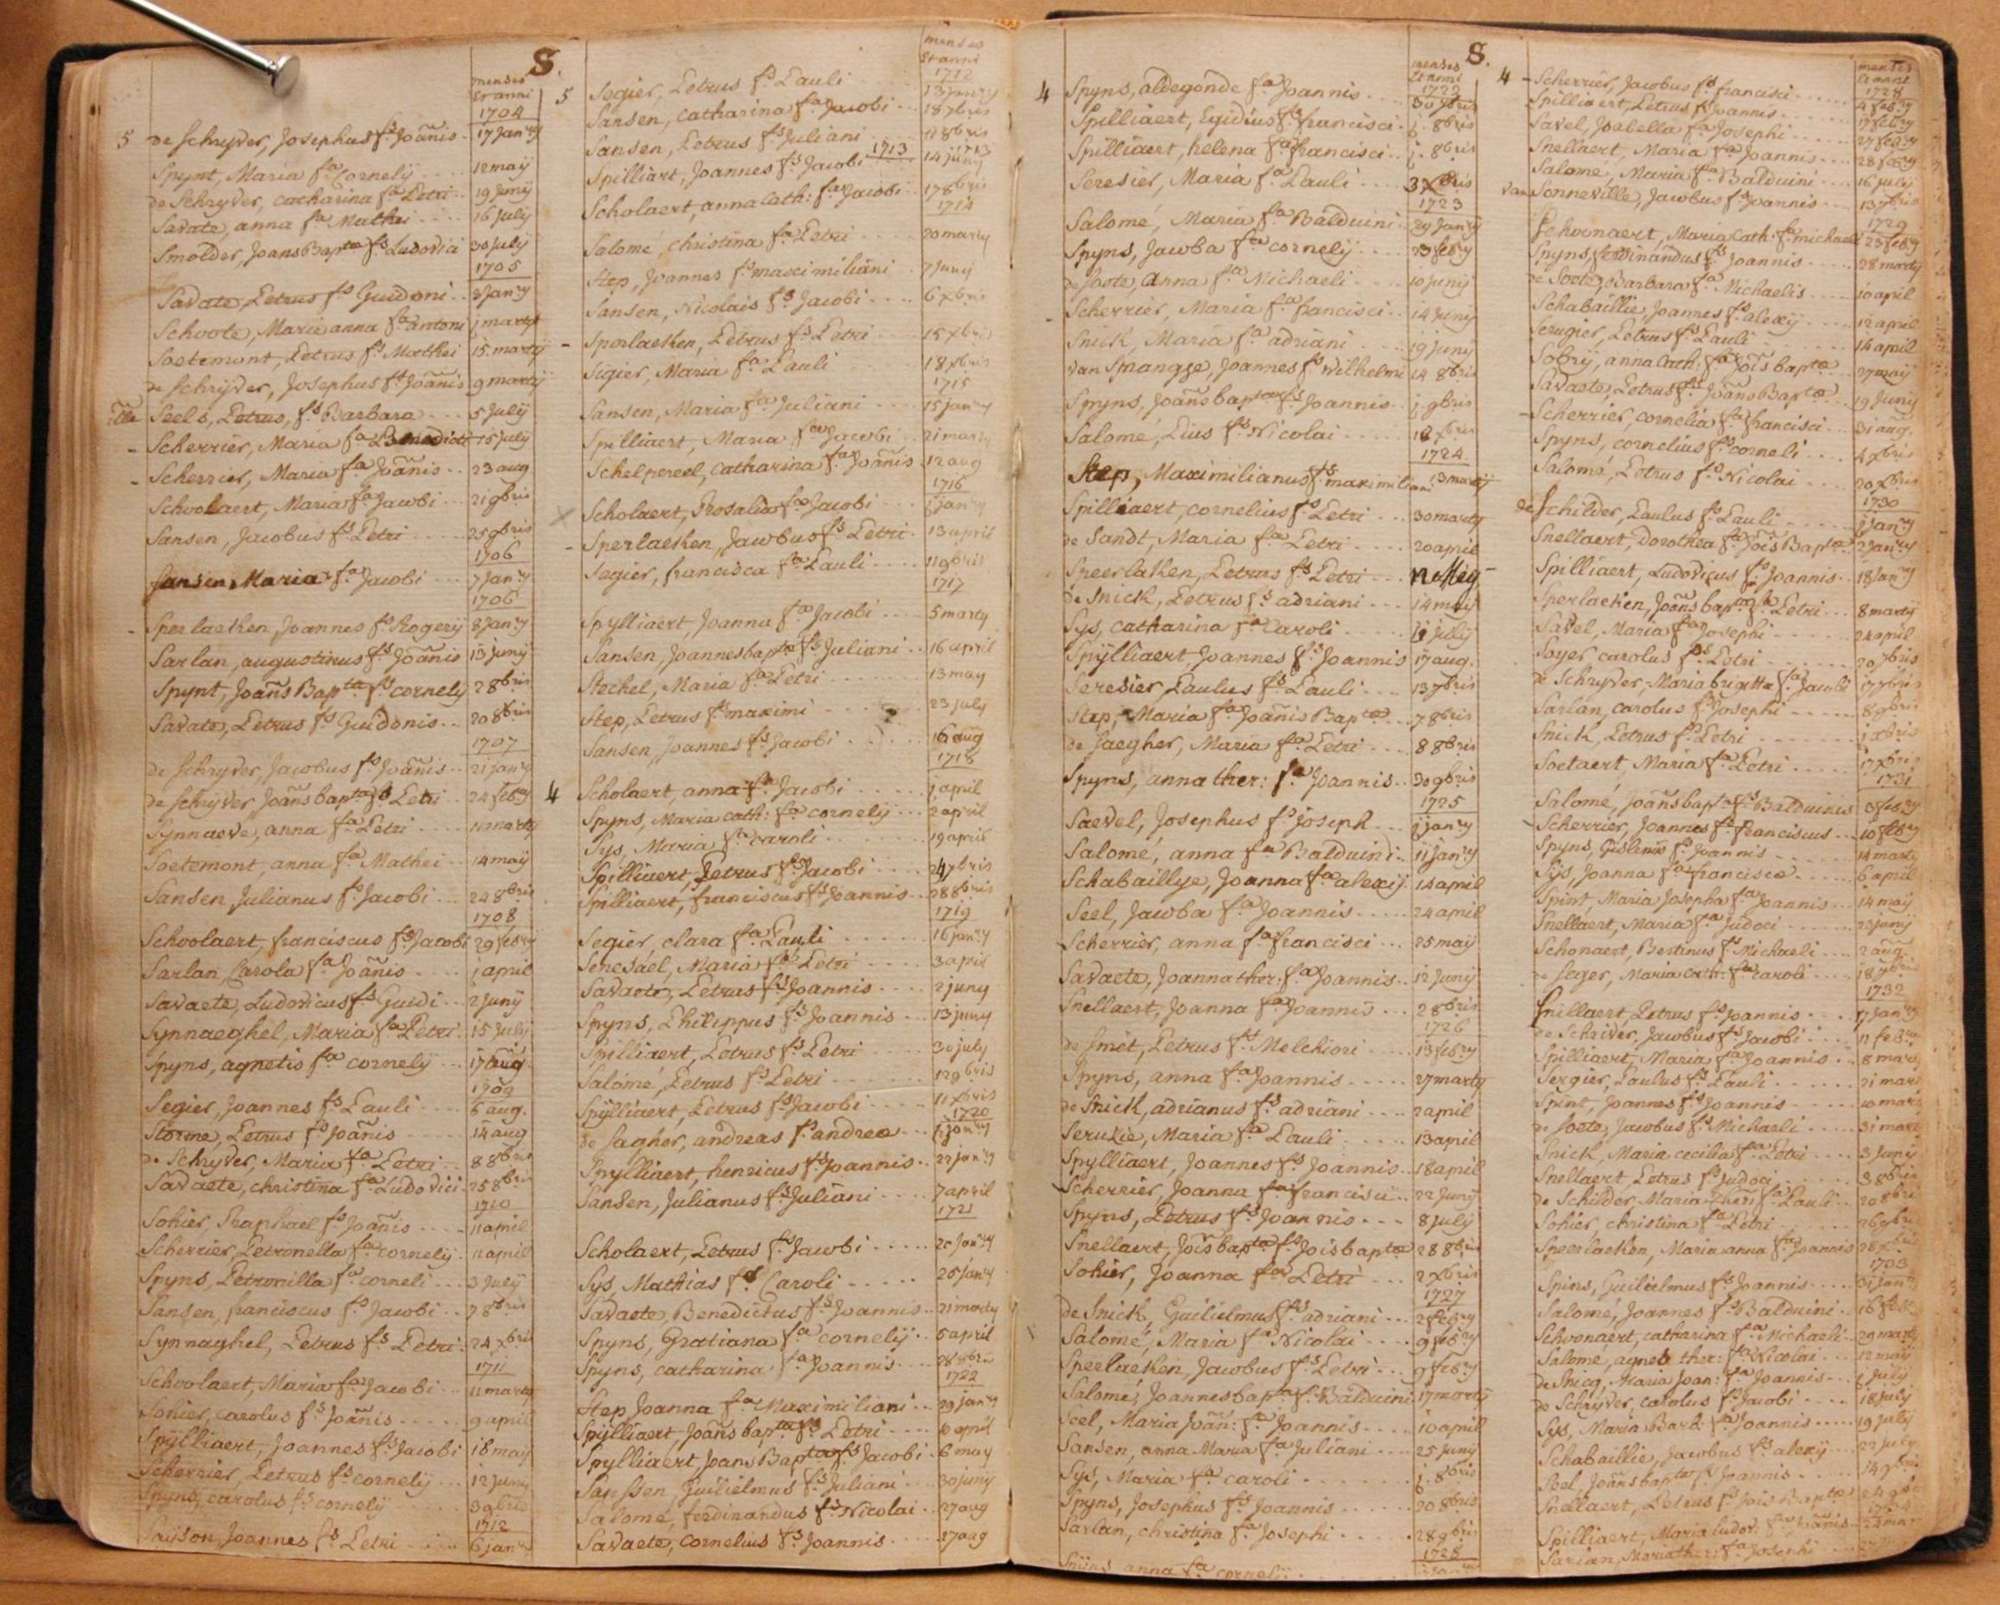 S.
menses
et anni
1704
5 de Schryver, Josephus fs Joãnis 17 Janry
Spynt, Maria fa Cornelÿ 12 maÿ
de Schryver, catharina fa Petri 19 Junÿ
Savate, anna fa Mathei 16 Julÿ
Smolder, Joans Bapta fs Ludovici 30 Julÿ
1705
Savate, Petrus fs Guidoni 3 Janry
Schoote, Maria anna fa antoni j martÿ
Soetemont, Petrus fs Matthei 15 martÿ
de Schrÿver, Josephus fs Joãnis 9 martÿ
Seels, Petrus, fs Barbara 5 Julÿ
- Scherrier, Maria fa Benedicti 15 July
- Scherrier, Maria fa Joãnis 23 aug
Schoolaert, Maria fa Jacobi 21 9bris
Sansen, Jacobus fs Petri 25 9bris
1706
Sansen, Maria fa Jacobi 7 Janry
1706
- Sperlaeken, Joannes fs Rogerÿ 8 Janry
Sarlan, augustinus fs Joãnis 13 junÿ
Spynt, Joãns Bapta fs cornely 28bris
Savate, Petrus fs Guidonis 20 8bris
1707
de Schryver, Jacobus fs Joãnis 21 Janry
de Schryver Joãns bapta fs Petri 24 febry
Synnaeve, anna fa Petri 11 marty
Soetemont, anna fa Mathei 14 maÿ
Sansen, Julianus fs Jacobi 24 8bris
1708
Schoolaert, franciscus fs Jacobi 29 febry
Sarlan, Carola fa Joãnis j april
Savaete, Ludovicus fs Guidi 2 Junÿ
Synnaeghel, Maria fa Petri 15 Julÿ
Spyns, agnetis fa cornely 17 aug
1709
Segier, Joannes fs Pauli 6 aug.
Storme, Petrus fs Joãnis 14 aug
de Schryver, Maria fa Petri 8 8bris
Savaete, christina fa Ludovici 25 8bris
1710
Sohier, Raphael fs Joãnis 11 april
Scherrier, Petronella fa cornely 11 april
Spyns, Petronilla fa corneli 3 Julÿ
Sansen, franciscus fs Jacobi 7 8bris
Synnaghel, Petrus fs Petri 24 xbris
1711
Schoolaert, Maria fa Jacobi 11 marty
Sohier, carolus fs Joãnis 9 april
Spÿlliaert, Joannes fs Jacobi 18 maÿ
Scherrier, Petrus fs cornely 12 Juny
Spyns, carolus fs cornely 3 9bris
1712
Saÿson, Joannes fs Petri 6 janry
menses
et anni
1712
5 Segier, Petrus fs Pauli 13 janry
Sansen, catharina fa Jacobi 18 7bris
Sansen, Petrus fs Juliani 11 8bris
1713
Spilliart, Joannes fs Jacobi 14 junÿ
Scholaert, anna Cath: fa Jacobi 17 8bris
1714
Salomé, christina fa Petri 20 marty
Step, Joannes fs maximiliani 7 Junÿ
Sansen, Nicolais fs Jacobi 6 xbris
- Sperlaeken, Petrus fs Petri 15 xbris
Sigier, Maria fa Pauli 18 xbris
1715
Sansen, Maria fa Juliani 15 janry
Spilliaert, Maria fa Jacobi 21 marty
Schelpereel, Catharina fa Joãnis 12 aug
1716
Scholaert, Rosalia fa Jacobi janry
- Sperlaeken, Jacobus fs Petri 13 april
Segier, francisca fa Pauli 11 9bris
1717
Spylliaert, Joanna fa Jacobi 5 marty
Sansen, Joannesbapta fs Juliani 16 april
Steckel, Maria fa Petri 13 may
Step, Petrus fs maximi 23 july
Sansen, Joannes fs Jacobi 16 aug
1718
4 Scholaert, anna fa Jacobi j april
Spyns, Maria cath: fa cornelÿ 2 april
Sys, Maria fa caroli 19 april
Spilliaert, Petrus fs Jacobi 24 7bris
Spilliaert, franciscus fs Joannis 28 8bris
1719
Segier, clara fa Pauli 16 janry
Seresáel, Maria fa Petri 3 april
Savaete, Petrus fs Joannis 2 juny
Spyns, Philippus fs Joannis 13 juny
Spilliaert, Petrus fs Petri 30 july
Salomé, Petrus fs Petri 12 9bris
Spÿlliaert, Petrus fs Jacobi 11 xbris
1720
de Sagher, andreas fs andreæ janry
Spylliaert, henricus fs Joannis 22 janry
Sansen, Julianus fs Juliani 7 april
1721
Scholaert, Petrus fs Jacobi 20 Janry
Sys, Mathias fs Caroli 26 Janry
Savaete, Benedictus fs Joannis 21 marty
Spyns, Gratiana fa cornelÿ 5 april
Spyns, catharina fa Joannis 28 8bris
1722
Step, Joanna fa Maximiliani 29 janry
Spylliaert, Joãns bapta fs Petri 10 april
Spylliaert, Joans Bapta fs Jacobi 6 may
Sanssen, Guilielmus fs Juliani 30 juny
Salomé, ferdinandus fs Nicolai 27 aug
Savaete, Cornelius fs Joannis 27 aug
S.
menses
et anni
1722
4 Spyns, aldegonde fa Joannis 30 7bris
Spilliaert, Egidius fs francisci j. 8bris
Spilliaert, helena fa francisci j. 8bris
Seresier, Maria fa Pauli 3 xbris
1723
Salomé, Maria fa Balduini 29 Janry
Spyns, Jacoba fa cornelÿ 23 febry
de Soete, Anna fa Michaeli 10 junÿ
- Scherrier, Maria fa francisci 14 Junÿ
Snick, Maria fa adriani 19 Junÿ
van Spmangge, Joannes fs Wilhelmi 14 8bris
Spyns, Joãns baptas fs Joannis j 9bris
Salomé, Pius fs Nicolai 18 xbris
1724
Step, Maximilianus fs maximiliani 13 martÿ
Spilliaert, cornelius fs Petri 30 marty
de Sandt, Maria fa Petri 20 april
Speerlaken, Petrus fs Petri 11 Meÿ
de Snick, Petrus fs adriani 14 maÿ
Sys, catharina fa Caroli 11 julÿ
Spÿlliaert, Joannes fs Joannis 17 aug.
Seresier, Paulus fs Pauli 13 7bris
Step, Maria fa Joãnis Bapta 7 8bris
de Saegher, Maria fa Petri 8 8bris
Spyns, anna ther: fa Joannis 30 9bris
1725
Saevel, Josephus fs Joseph j janry
Salomé, anna fa Balduini 11 Janry
Schabaillye, Joanna fa alexÿ 14 april
Seel, Jacoba fa Joannis 24 april
- Scherrier, anna fa francisci 25 maÿ
Savaete, Joanna ther: fa Joannis 12 Junÿ
Snellaert, Joanna fa Joannis 28bris
1726
de Smet, Petrus fs Melchiori 13 febry
Spyns, anna fa Joannis 27 marty
de Snick, adrianus fs adriani 2 april
Seruxie, Maria fa Pauli 13 april
Spylliaert, Joannes fs Joannis 18 april
Scherrier, Joanna fa francisci 22 Junÿ
Spyns, Petrus fs Joannis 8 July
Snellaert, Jois bapta fs Jois bapta 28 8bris
Sohier, Joanna fa Petri 2 xbris
1727
de Snick, Guilielmus fs adriani 2 febry
Salomé, Maria fa Nicolai 9 febry
Speelaeken, Jacobus fs Petri 9 febry
Salomé, Joannesbapta fs Balduini 17 marty
Seel, Maria Joãn: fa Joannis 10 april
Sansen, anna Maria fa Juliani 25 Juny
Sys, Maria fa caroli j. 8bris
Spyns, Josephus fs Joannis 20 8bris
Sarlan, christina fa Josephi 28 9bris
1728
Spijns anna fa cornelÿ
menses
et anni
1728
4 - Scherrier, Jacobus fs francisci 4 febry
Spilliaert, Petrus fs Joannis 17 febry
Savel, Isabella fa Josephi 27 febry
Snellaert, Maria fa Joannis 28 febry
Salomé, Maria fa Balduini 16 julÿ
van Sonneville, Jacobus fs Joannis 13 7bris
1729
Schoonaert, Maria Cath: fa michaeli 23 febry
Spyns, ferdinandus fs Joannis 28 marty
de Soete, Barbara fa Michaelis 10 april
Schabaillie, Joannes fs alexÿ 12 april
Serugier, Petrus fs Pauli 14 april
Sobry, anna Cath: fa Jois bapta 27 maÿ
Savaete, Petrus fs Joãns Bapta 19 Juny
- Scherrier, cornelia fa francisci 31 aug.
Spyns, cornelius fs corneli 4 xbris
Salomé, Petrus fs Nicolai 20 xbris
1730
de Schilder, Paulus fs Pauli j Janry
Snellaert, Dorothea fa Jois Bapta 2 Janry
Spilliaert, Ludovicus fs Joannis 18 Janry
Sperlaeken, Joãns bapta fs Petri 8 marty
Savel, Maria fa Josephi 24 april
Soyer carolus fs Petri 20 7bris
de Schryver, Maria brigitta fa Jacobi 17 7bris
Sarlan, carolus fs Josephi 8 9bris
Snick, Petrus fs Petri j xbris
Soetaert, Maria fa Petri 17 xbris
1731
Salomé, Joãns bapta fs Balduini 3 febry
- Scherrier, Joannes fs franciscus 10 febry
Spyns, Gislenus fs Joannis 14 marty
Sÿs, Joanna fa francisca 6 april
Spint, Maria Josepha fa Joannis 14 maÿ
Snellaert, Maria fa Judoci 23 junÿ
Schonaert, Bertinus fs Michaeli 2 aug.
de Seger, Maria cath: fa caroli 18 7bris
1732
Spilliaert, Petrus fs Joannis 17 Janry
de Schriver, Jacobus fs Jacobi 11 febry
Spilliaert, Maria fa Joannis 8 mart
Sergier, Paulus fs Pauli 21 mart
Spint, Joannes fs Joannis 10 mart
de Soete, Jacobus fs Michaeli 31 mart
Snick, Maria cecilia fa Petri 3 Juny
Snellaert, Petrus fs Judoci 3 8bris
de Schilder, Maria ther: fa Pauli 20 8bris
Sohier, christina fa Petri 26 9bris
Speerlaeken, Maria anna fa Joannis 28 xbris
1733
Spins, Guilielmus fs Joannis 31 Janry
Salomé, Joannes fs Balduini 16 feb
Schoonaert, catharina fa Michaeli 29 mart
Salomé, agnes ther: fa Nicolai 12 maÿ
de Snicq, Maria Joan: fa Joannis j July
de Schryver, carolus fs Jacobi 18 July
Sys, Maria Barb: fa Joannis 19 July
Schabaillie, Jacobus fs alexÿ 22 July
Seel, Joãns bapta fs Joannis 14 9bris
Snellaert, Petrus fs Jois Bapta 24 9bris
Spilliaert, Maria ludov: fa Joãnis
Sarlan, Maria ther: fa Josephi